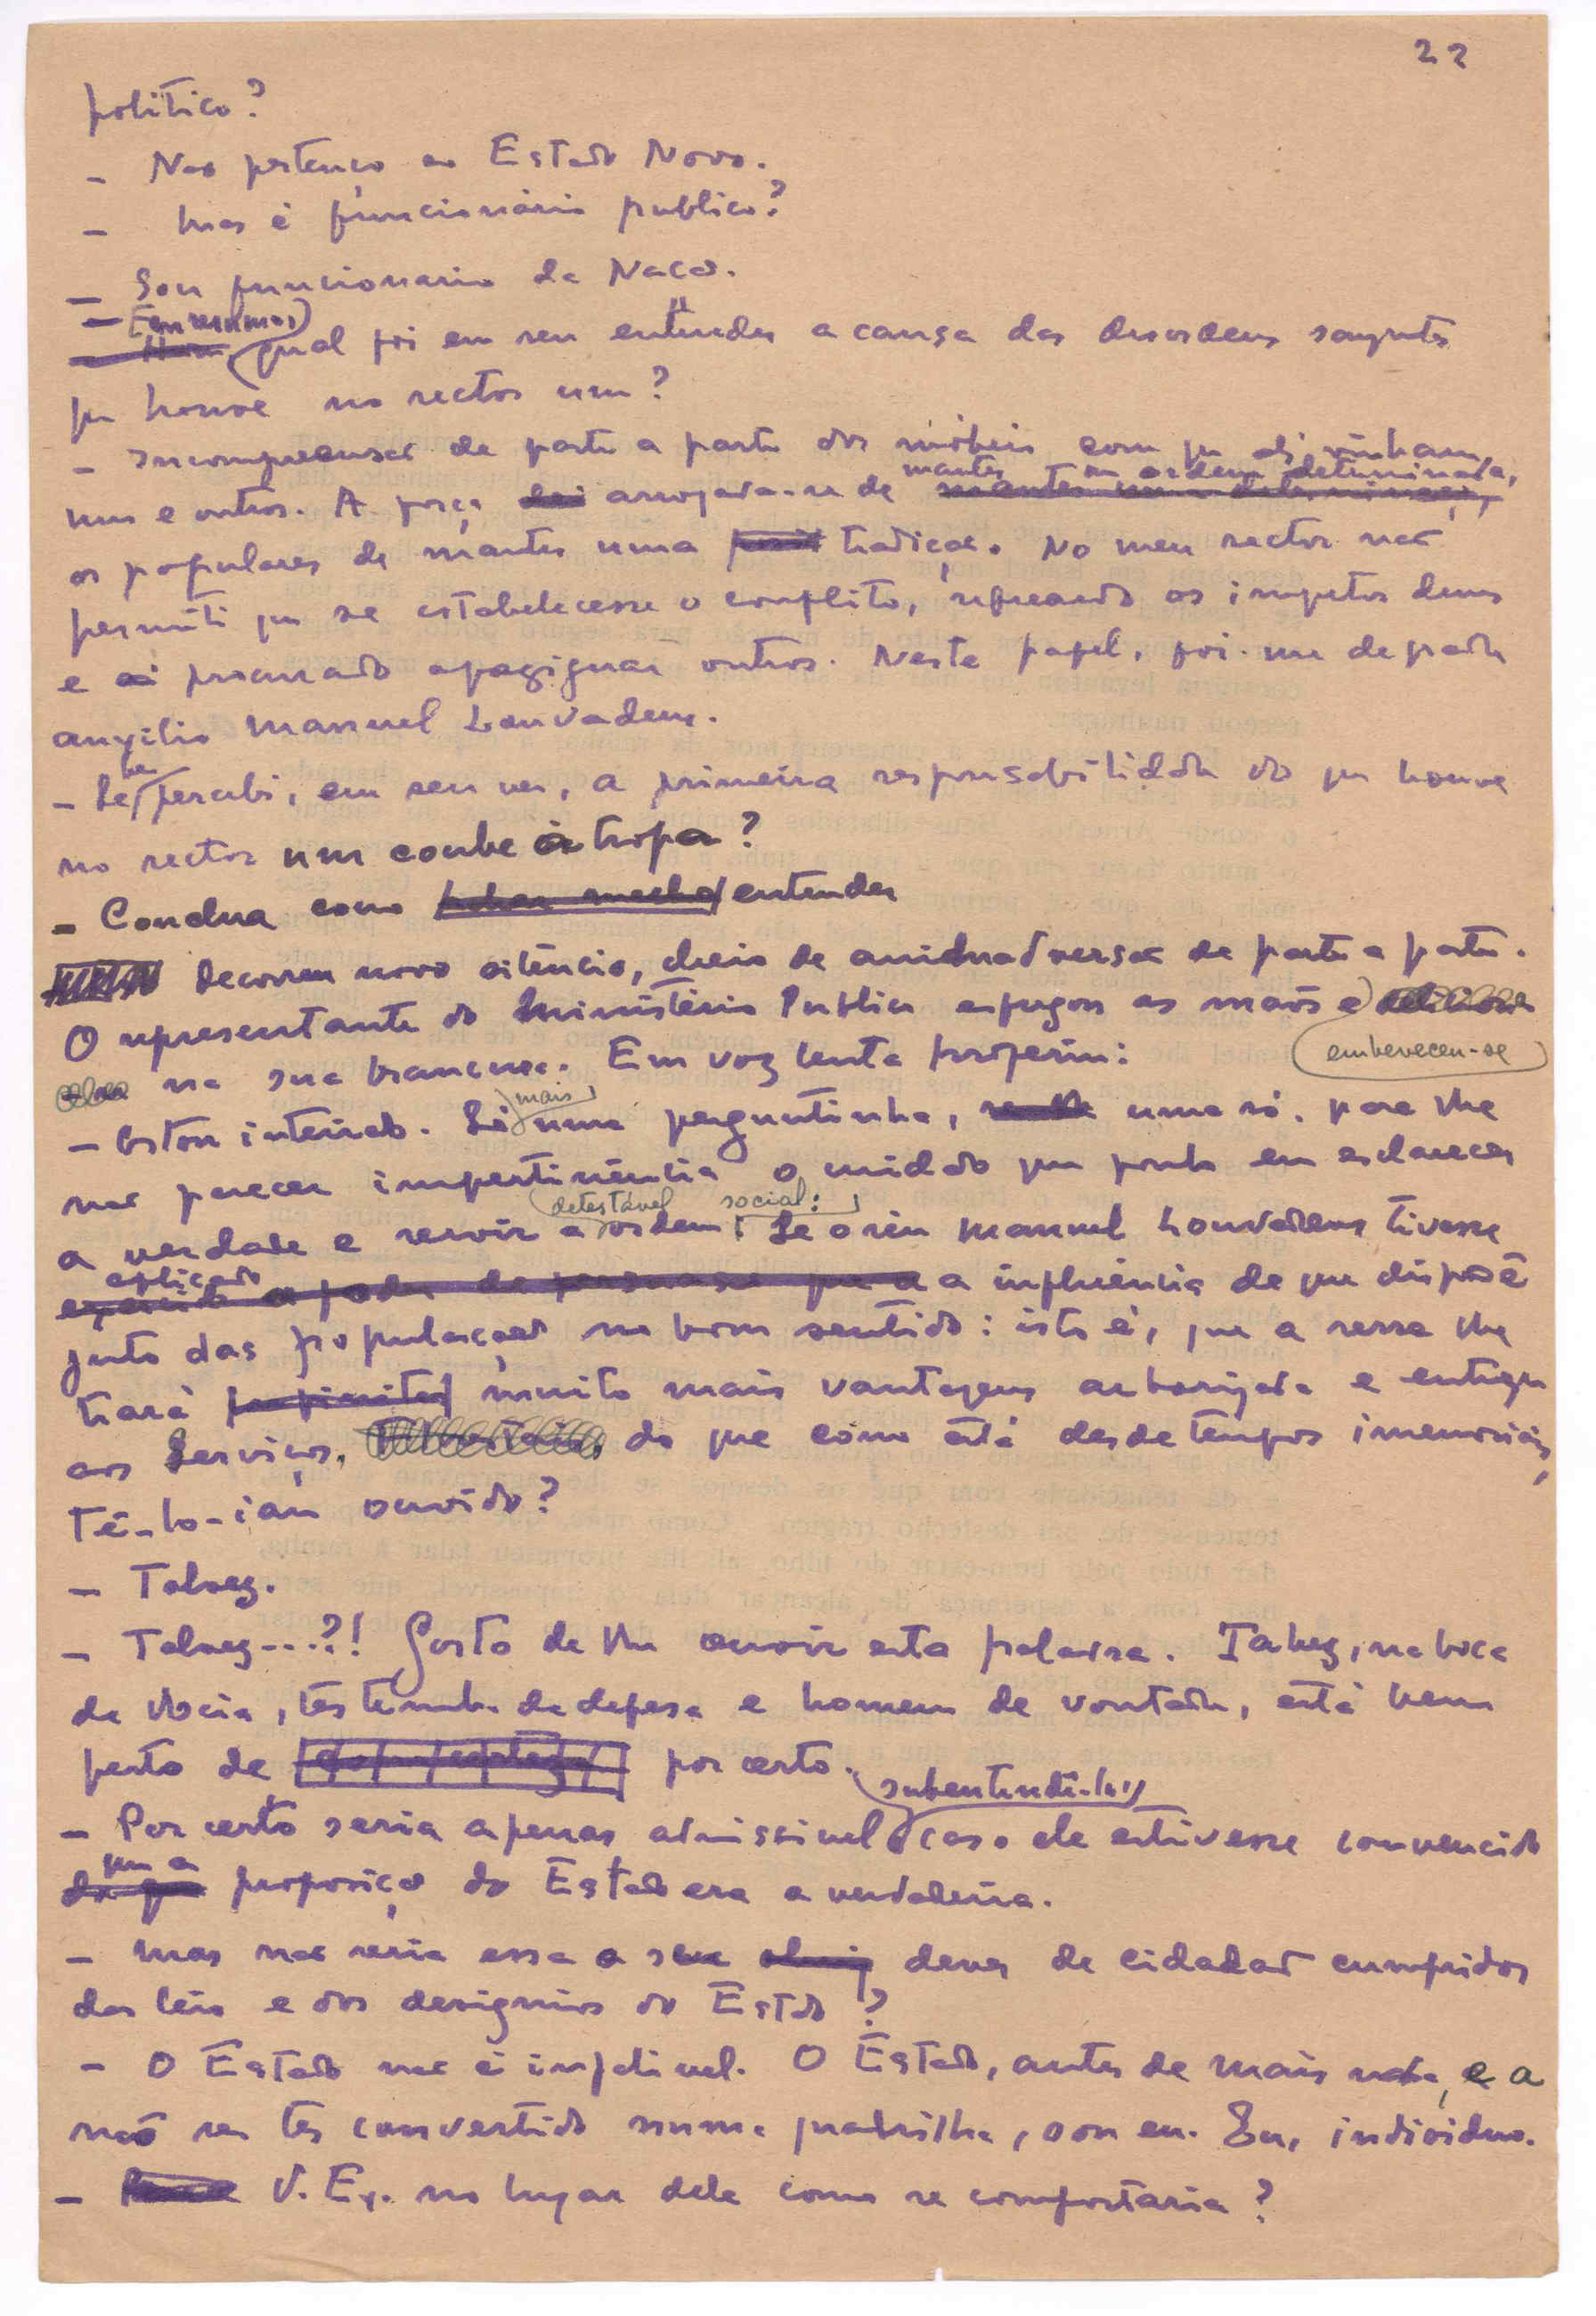 22
político?
- Não pertenço ao Estado Novo.
- Mas é funcionário publico?
- Sou funcionario da Nação.
- Em resumo, qual foi em seu entender a causa das desordens sangrentas
que houve no sector um?
- Incompreensão de parte a parte dos móbeis com que ali vinham
uns e outros. A força arrogava-se de manter a ordem determinada,
os populares de manter uma tradição. No meu sector não
permiti que se estabelecesse o conflito, refreando os impetos duns
e procurando apaziguar outros. Neste papel, foi-me de grande
auxilio Manuel Louvadeus.
- Se bem percebi, em seu ver, a primeira responsabilidade do que houve
no sector um coube à tropa?
- Conclua como entender
Decorreu novo silêncio, cheio de animadversão de parte a parte.
O representante do Ministério Publico esfregou as mãos e embeveceu-se
na sua brancura. Em voz lenta proferiu:
- Estou inteirado. Só mais uma perguntinha, uma só. para lhe
não parecer impertinência o cuidado que ponho em esclarecer
a verdade e servir a detestável ordem social: Se o réu Manuel Louvadeus tivesse
aplicado a influência de que dispõe
junto das populações no bom sentido: isto é, que a serra lhe
trará muito mais vantagens arborizada e entregue
aos Serviços, do que como está desde tempos imemoriais,
Tê-lo-iam ouvido?
- Talvez.
- Talvez...?! Gosto de lhe ouvir esta palavra. Talvez, na boca
de Vocia, testemunha de defesa e homem de vontade, está bem
perto de por certo.
- Por certo seria apenas admissivel subentendê-lo, caso ele estivesse convencido
que a proposição do Estado era a verdadeira.
- Mas não seria esse o seu dever de cidadão cumpridor
das leis e dos designios do Estado?
- O Estado não é infalivel. O Estado, antes de mais nada, e a
não se ter convertido numa quadrilha, sou eu. Eu, individuo.
- V. Ex. no lugar dele como se comportaria?